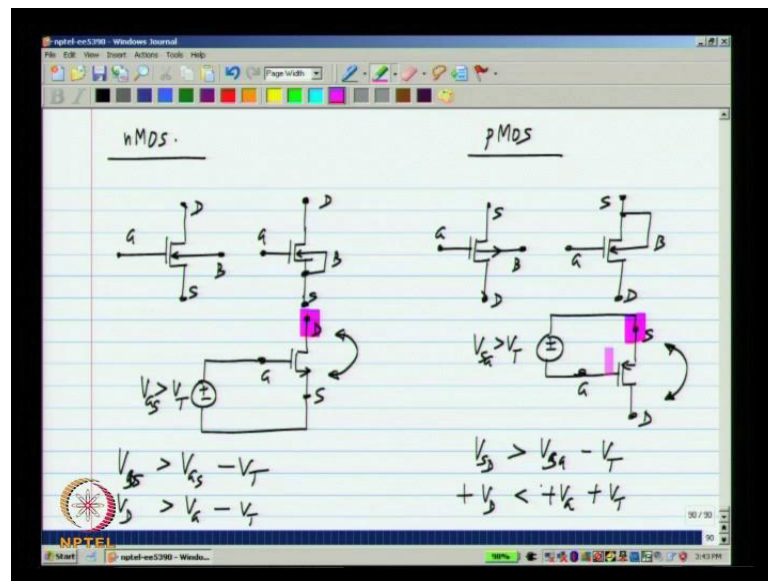 nptel-ee5390 - Windows Journal
File Edit View Insert Actions Tools Help
Page Width
B I
nMOS.
pMOS
D
G
B
S
D
G
B
S
S
G
B
D
S
G
B
D
D
G
S
V_GS > V_T
±
S
G
D
V_SG > V_T
±
V_DS > V_GS - V_T
V_D > V_G - V_T
V_SD > V_SG - V_T
+ V_D < + V_G + V_T
90 / 90
90
NPTEL
Start
nptel-ee5390 - Windo...
98%
3:43 PM